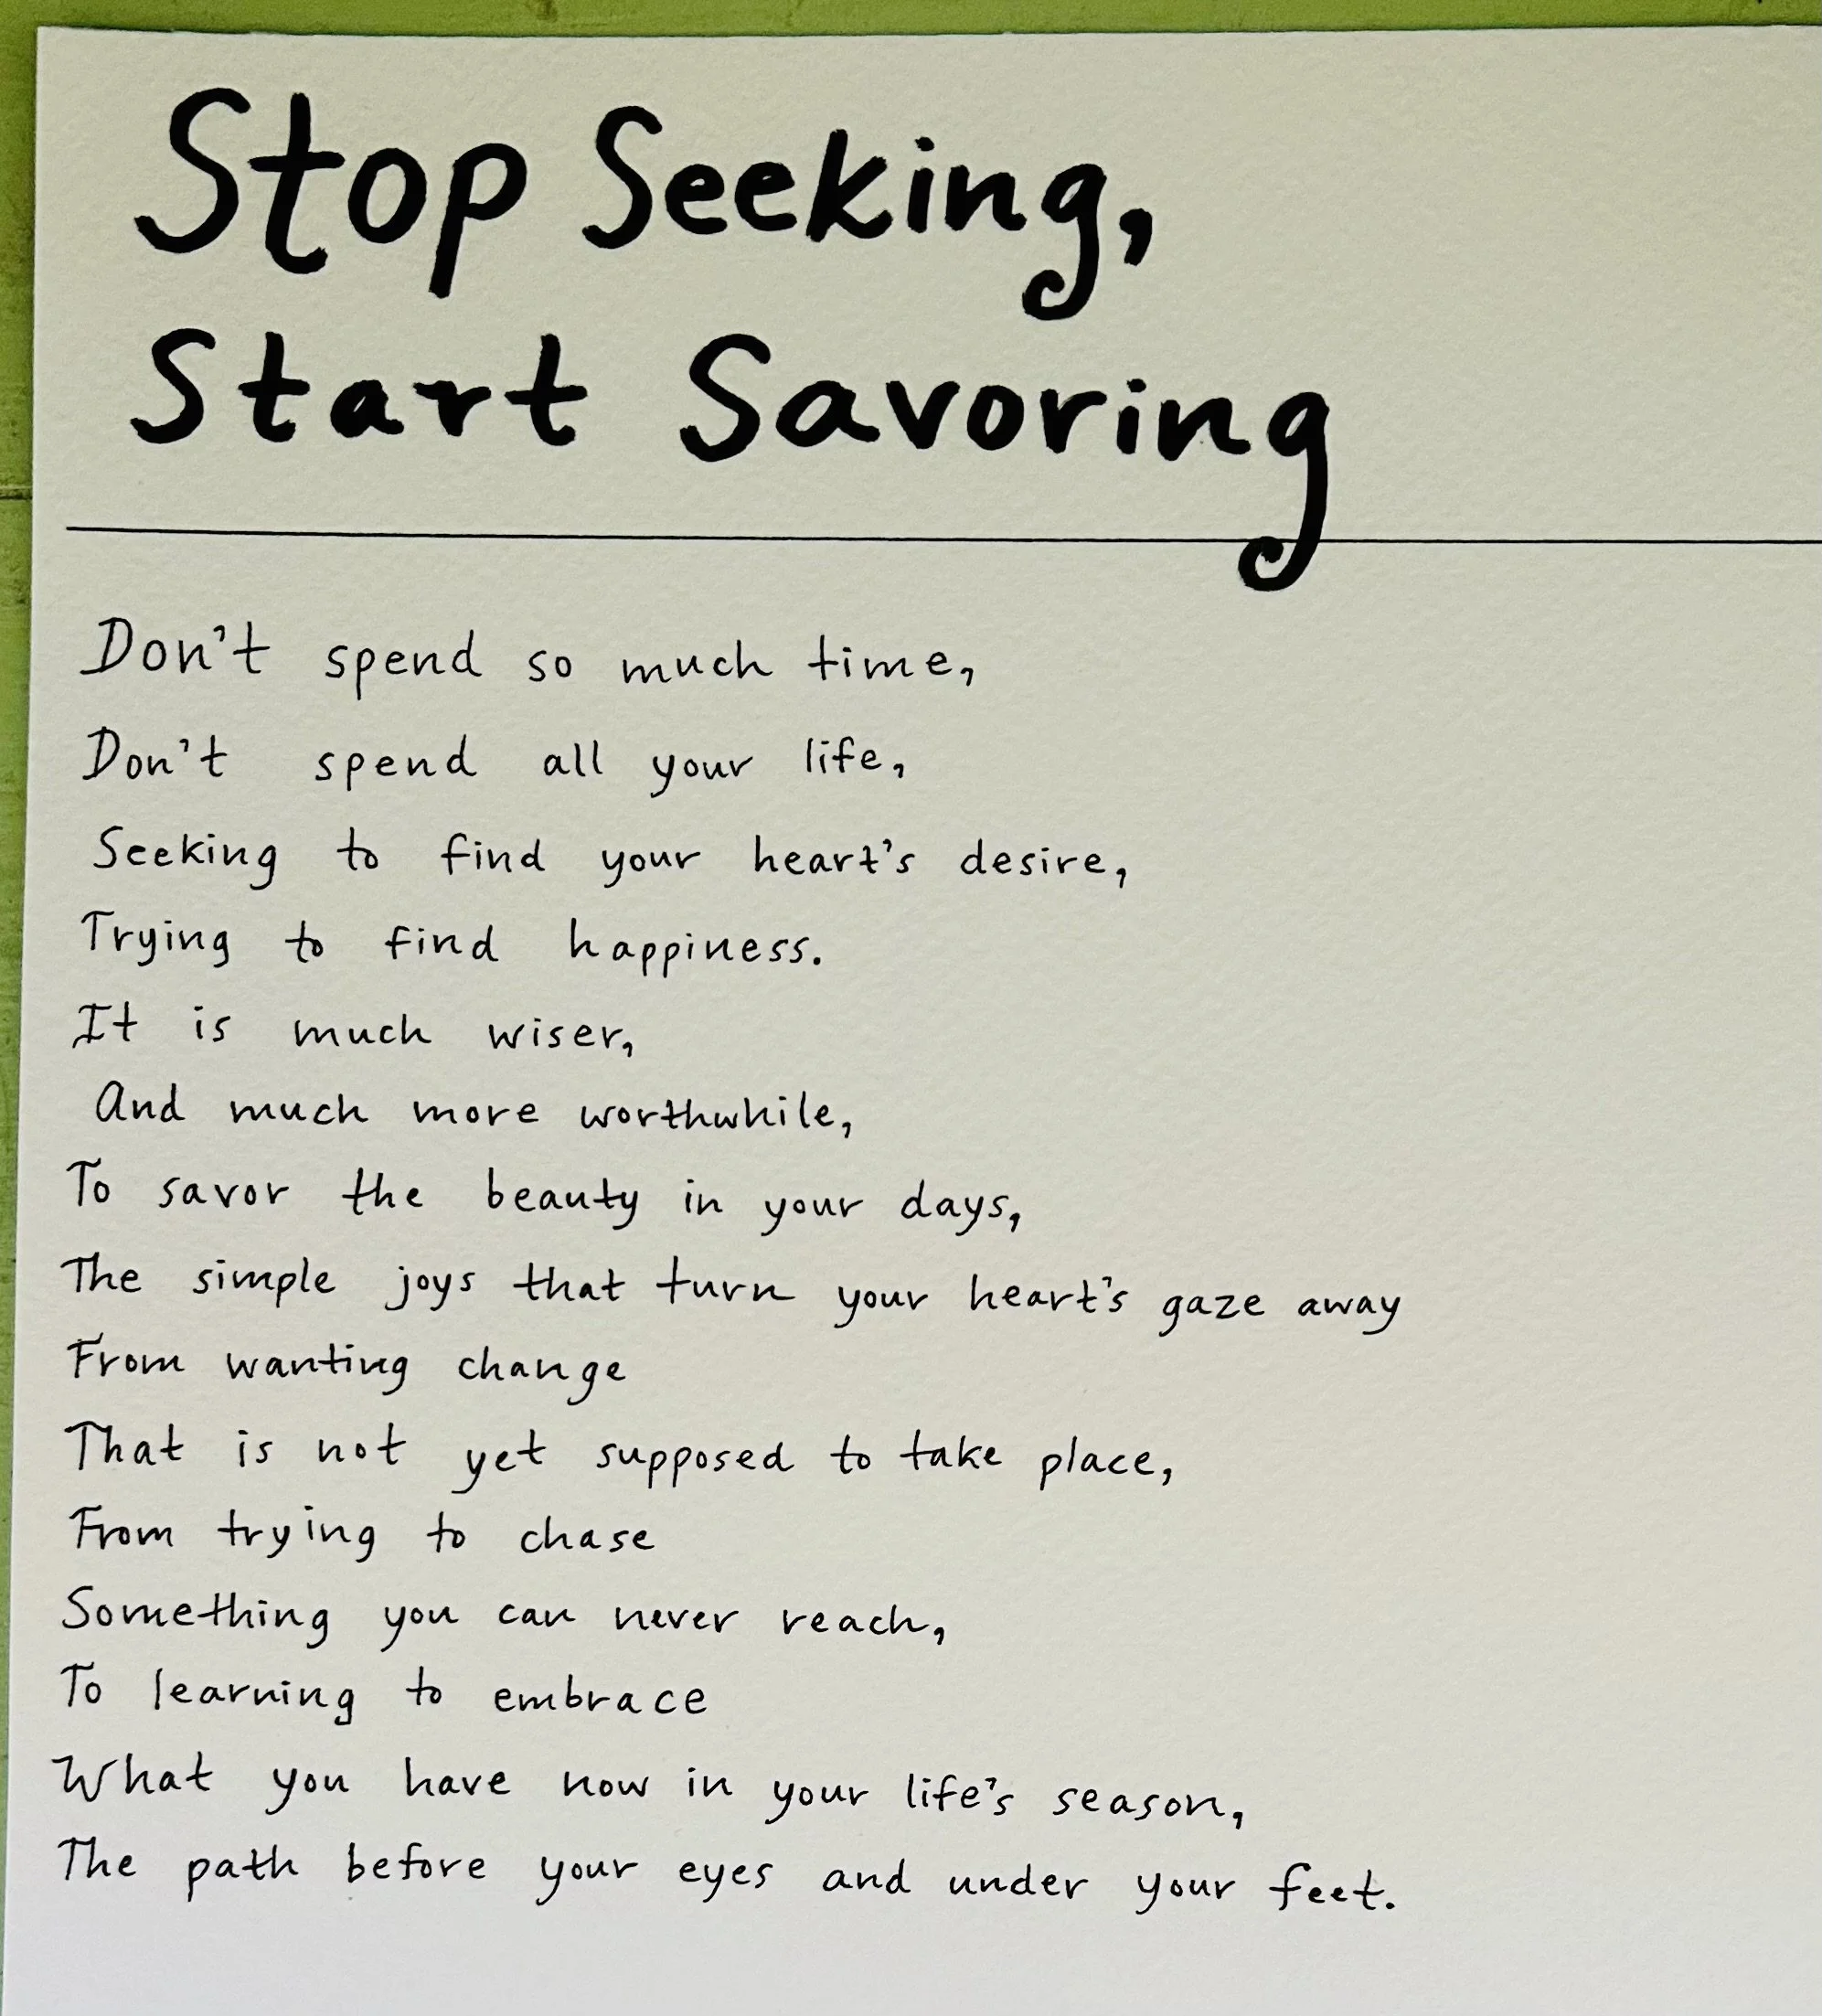 Stop Seeking,
Start Savoring
Don't spend so much time,
Don't spend all your life,
Seeking to find your heart's desire,
Trying to find happiness.
It is much wiser,
And much more worthwhile,
To savor the beauty in your days,
The simple joys that turn your heart's gaze away
From wanting change
That is not yet supposed to take place,
From trying to chase
Something you can never reach,
To learning to embrace
What you have now in your life's season,
The path before your eyes and under your feet.